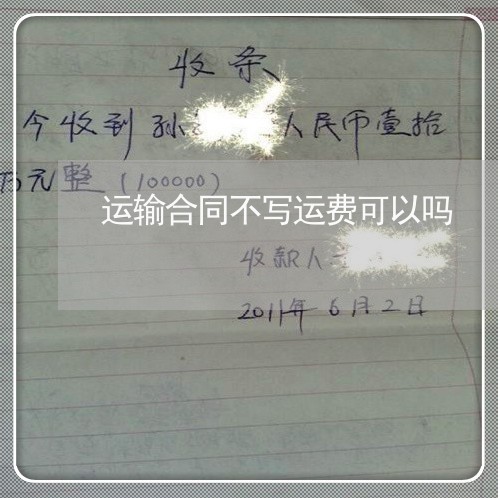 收条
今收到孙 人民币壹拾
万元整（100000）
运输合同不写运费可以吗
收款人
2011年6月2日